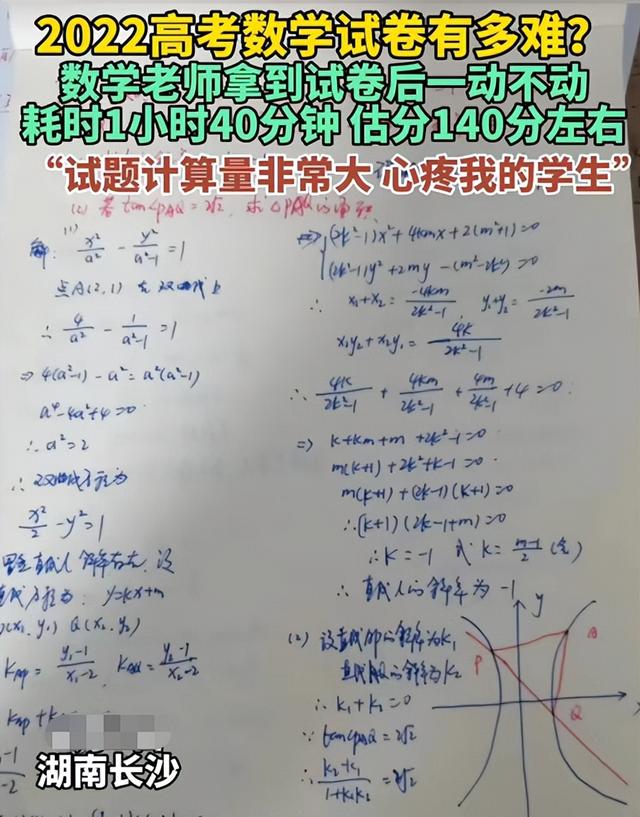 2022高考数学试卷有多难？
数学老师拿到试卷后一动不动
耗时1小时40分钟 估分140分左右
“试题计算量非常大 心疼我的学生”
(2) 若tan∠PAQ=2√2，求△PAQ的面积
(1)
解: x²/a² - y²/(a²-1) = 1
点A(2,1) 在双曲线上
∴ 4/a² - 1/(a²-1) = 1
⇒ 4(a²-1) - a² = a²(a²-1)
a⁴-4a²+4=0
∴ a²=2
∴ 双曲线方程为
x²/2 - y² = 1
直线l斜率存在, 设
直线方程为: y=kx+m
(x₁,y₁) Q(x₂,y₂)
K_AP = (y₁-1)/(x₁-2), K_AQ = (y₂-1)/(x₂-2)
K_AP + K
-1
-2
⇒ (2k²-1)x²+4kmx+2(m²+1)=0
(2k²-1)y²+2my-(m²-2k²)=0
∴ x₁+x₂ = -4km/(2k²-1), y₁+y₂ = -2m/(2k²-1)
x₁y₂+x₂y₁ = 4k/(2k²-1)
∴ 4k/(2k²-1) + 4km/(2k²-1) + 4m/(2k²-1) + 4 = 0
⇒ k+km+m+2k²-1=0
m(k+1)+2k²+k-1=0
m(k+1)+(2k-1)(k+1)=0
∴(k+1)(2k-1+m)=0
∴ k=-1 或 k=
(舍)
∴ 直线l的斜率为 -1
(2) 设直线AP的斜率为k₁
直线AQ的斜率为k₂
∴ k₁+k₂=0
∵ tan∠PAQ=2√2
∴ (k₂-k₁)/(1+k₁k₂) = 2√2
y
A
P
Q
湖南长沙